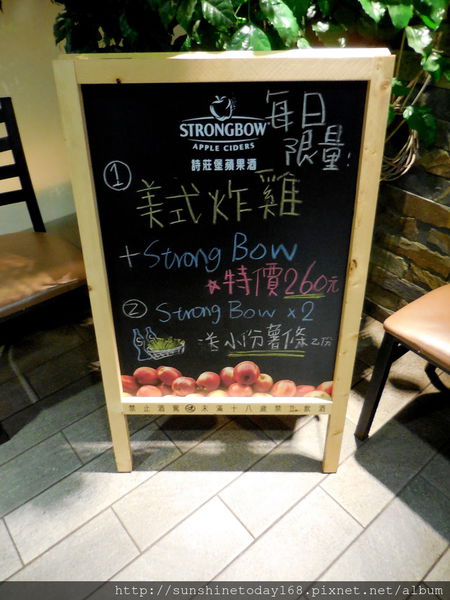 STRONGBOW
APPLE CIDERS
詩莊堡蘋果酒
每日
限量!
① 美式炸雞
+ Strong Bow
特價260元
② Strong Bow x 2
送小份薯條乙份
禁止酒駕 未滿十八歲禁止飲酒
http://sunshinetoday168.pixnet.net/album